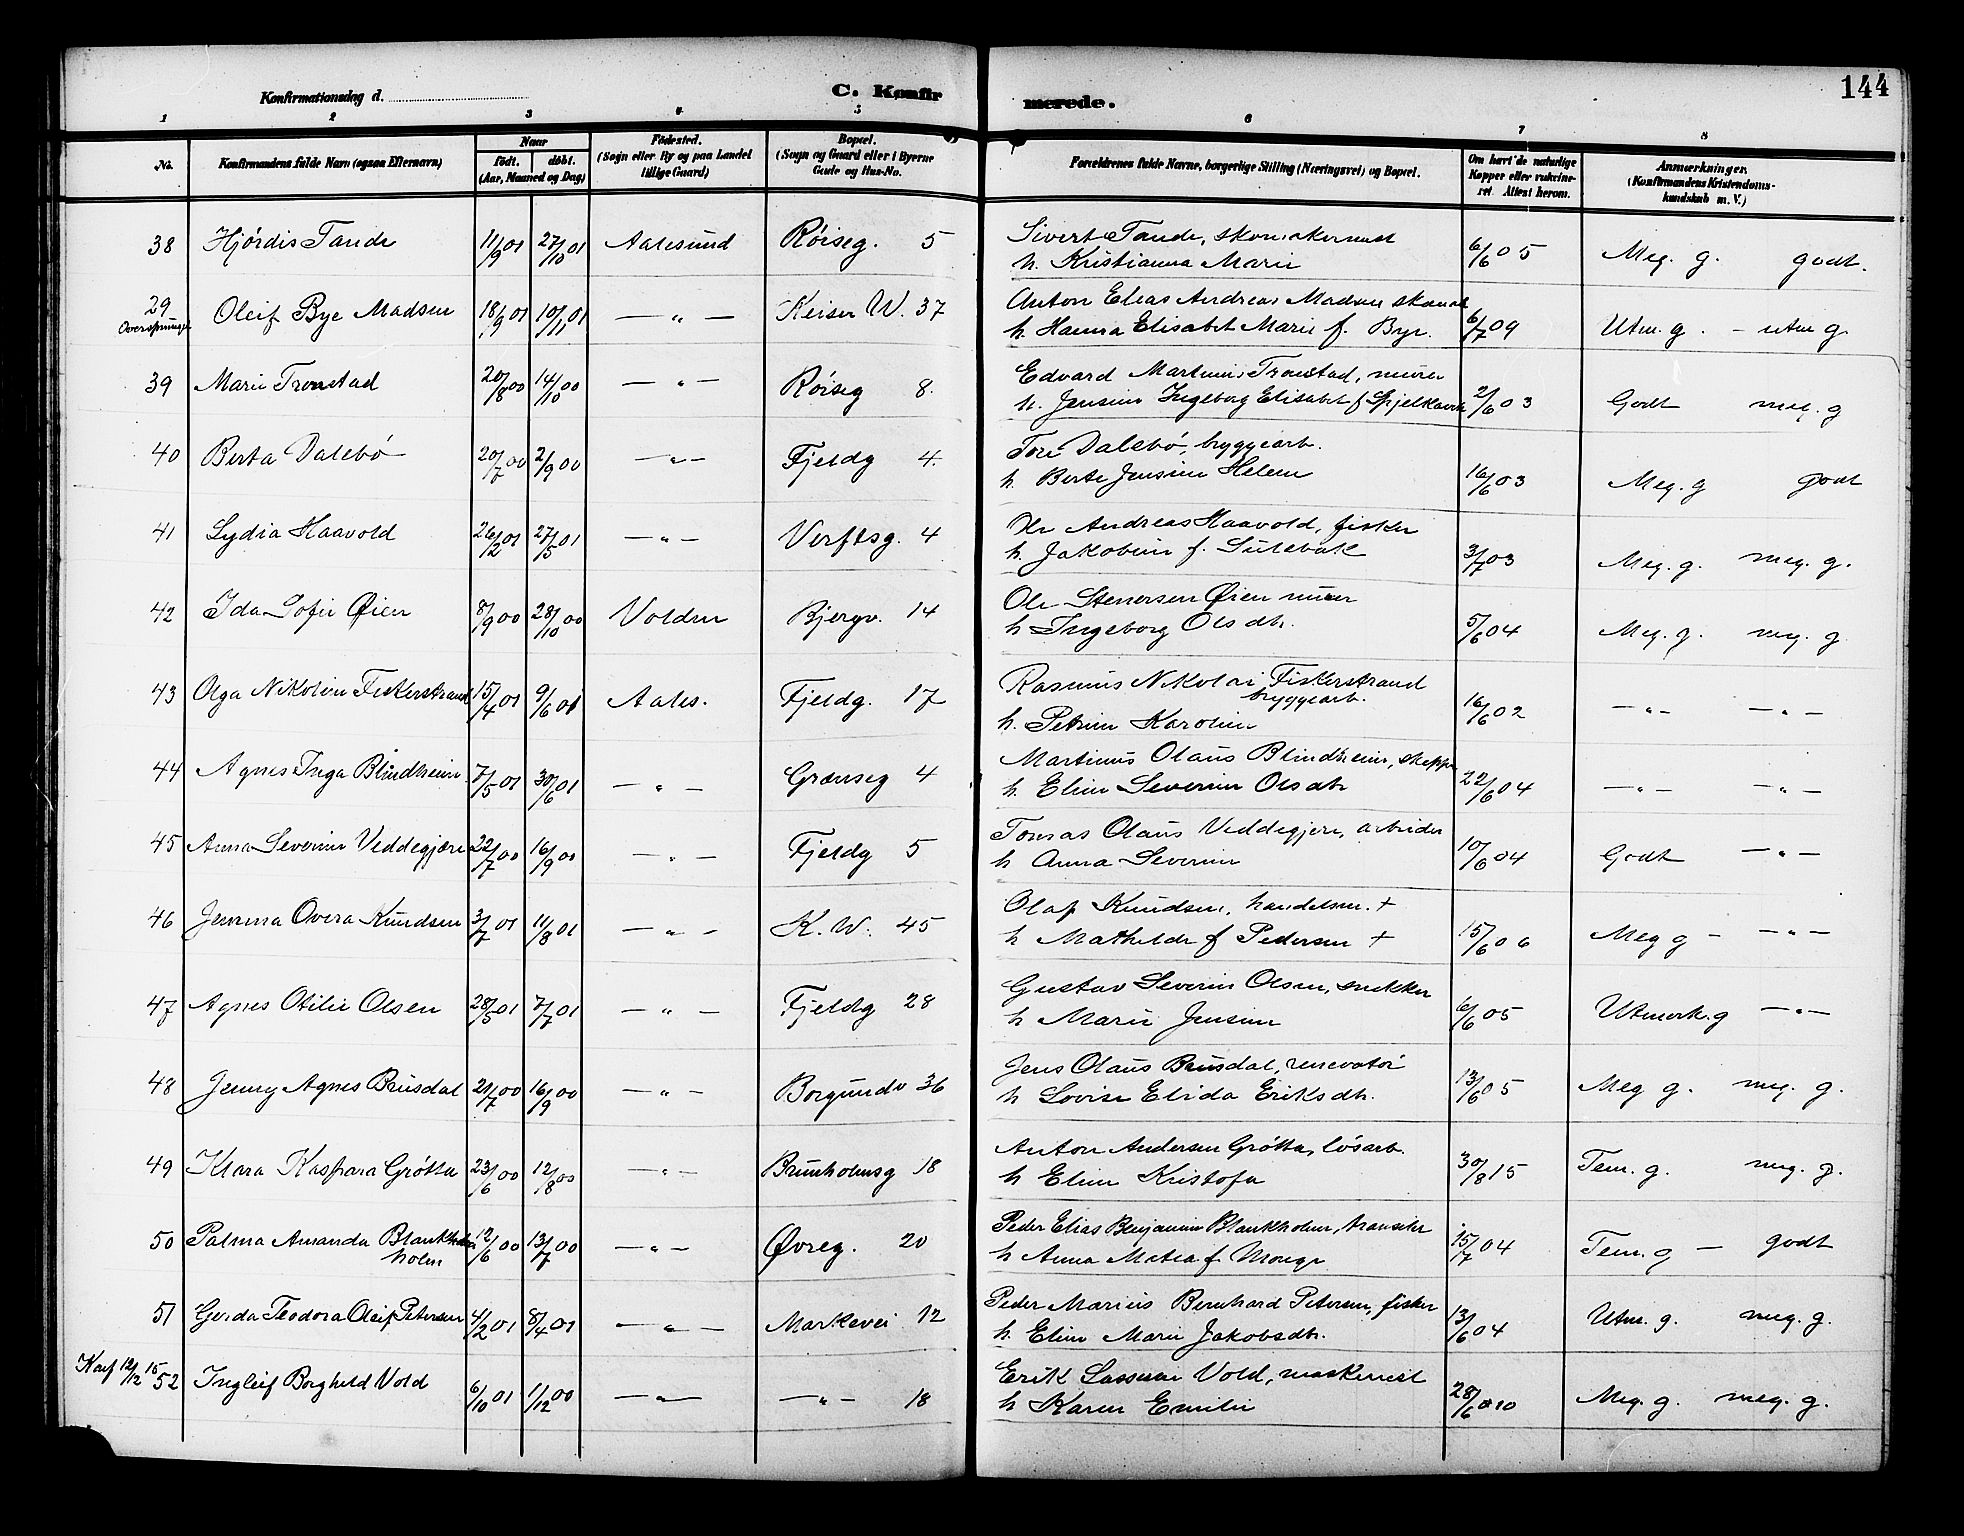 144
Konfirmationsdag d.
C. Konfirmerede.
1 2 3 4 5 6 7 8
No. Konfirmandens fulde Navn (ogsaa Efternavn) Naar født. døbt. (Aar, Maaned og Dag) Fødested. (Sogn eller By og paa Landet tillige Gaard) Bopæl. (Sogn og Gaard eller i Byerne Gade og Hus-No. Forældrenes fulde Navne, borgerlige Stilling (Næringsvei) og Bopæl. Om havt de naturlige Kopper eller vaksineret. Attest herom. Anmærkninger. (Konfirmandens Kristendomskundskab m. V.)
38 Hjørdis Tande 11/9 01 27/10 01 Aalesund Røiseg. 5 Sivert Tande, 6/6 05 Meg. g. godt.
h. Kristianna Marie
29 Oleif Bye Madsen 18/9 01 10/11 01 — " — Keiser W. 37 Anton Elias Andreas Madsen 6/7 09 Utm. g. – utm g.
Oversprunget h. Hanna Elisabet Marie f. Bye.
39 Marie Tronstad 20/8 00 14/10 00 — " — Røiseg 8. Edvard Martinus Tronstad, murer 2/6 03 Godt meg. g
h. Jensine Ingeborg Elisabet f. Spjelkavik
40 Berta Dalebø 20/7 00 2/9 00 — " — Fjeldg 4. Tore Dalebø, bryggearb. 16/6 03 Meg. g godt
h. Berte Jensine Helene
41 Lydia Haavold 26/2 01 27/5 01 — " — Verftsg. 4 Ole Andreas Haavold, fisker 3/7 03 Meg. g. meg. g.
h. Jakobine f. Sulebak
42 Ida Sofie Øien 8/9 00 28/10 00 Volden Bjergv. 14 Ole Stenersen Øien murer 5/6 04 Meg. g. meg. g.
h Ingeborg Olsdtr.
43 Olga Nikoline Fiskerstrand 15/4 01 9/6 01 Aales. Fjeldg. 17 Rasmus Nikolai Fiskerstrand 16/6 02 — " — — " —
bryggearb.
h. Petrine Karoline
44 Agnes Inga Blindheim 7/5 01 30/6 01 — " — Grænseg 4 Martinus Olaus Blindheim, skipper 22/6 04 — " — — " —
h. Eline Severine Olsdtr
45 Anna Severine Veddegjære 22/7 00 16/9 00 — " — Fjeldg 5 Tomas Olaus Veddegjære, arbeider 10/6 04 Godt — " —
h Anna Severine
46 Jemima Overa Knudsen 3/7 01 11/8 01 — " — K. W. 45 Olaf Knudsen, handelsm. + 15/6 06 Meg g – — " —
h Mathilde f Pedersen +
47 Agnes Otilie Olsen 28/5 01 7/7 01 — " — Fjeldg 28 Gustav Severin Olsen, snekker 6/6 05 Utmerk. g — " —
h Marie Jensine
48 Jenny Agnes Brusdal 21/7 00 16/9 00 — " — Borgundv 36 Jens Olaus Brusdal, renovatør 13/6 05 Meg g. meg. g.
h Lovise Elida Eriksdtr.
49 Klara Kaspara Grøtta 23/6 00 12/8 00 — " — Brunholmsg 18 Anton Andersen Grøtta, løsarb. 30/8 15 Tem. g. meg. g.
h Eline Kristofa
50 Palma Amanda Blankholm 12/6 00 13/7 00 — " — Øvreg. 20 Peder Elias Benjamin Blankholm, 15/7 04 Tem. g – godt
holm h Anna Matea f Monge
51 Gerda Teodora Oleif Petersen 4/2 01 8/4 01 — " — Markevei 12 Peder Marius Bernhard Petersen, fisker 13/6 04 Utm. g. meg. g.
h. Eline Marie Jakobsdtr.
Konf 12/12 15 52 Ingleif Borghild Vold 6/10 01 1/12 00 — " — — " — 18 Erik Vold, maskinist 28/6 010 Meg. g. meg. g.
h Karen Emilie